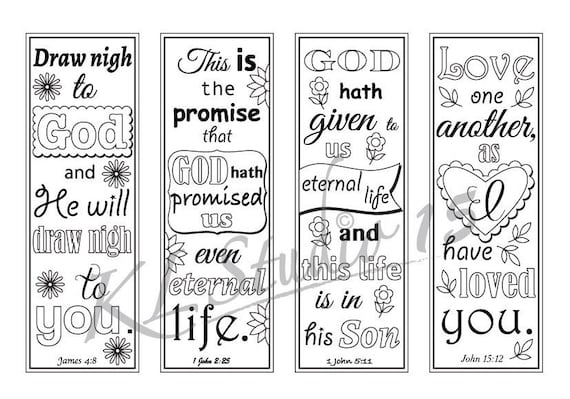 Draw nigh
to
God
and
He will
draw nigh
to
you.
James 4:8
This is
the
promise
that
GOD hath
promised
us
even
eternal
life.
1 John 2:25
GOD
hath
given to
us
eternal life
and
this life
is in
his Son
1 John 5:11
Love
one
another,
as
I
have
loved
you.
John 15:12
KLStudio15
©